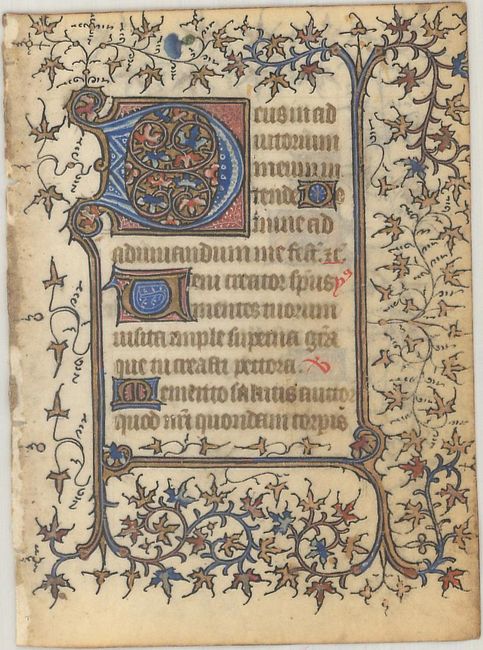 Deus in ad
iutorium
meum in
tende D̅o̅e
mine ad
adiuuandum me fest̅. x̅c̅.
Veni creator sp̅us
mentes tuorum
uisita imple superna gr̅a
que tu creasti pectora.
Memento salutis auctor
quod nr̅i quondam corpis